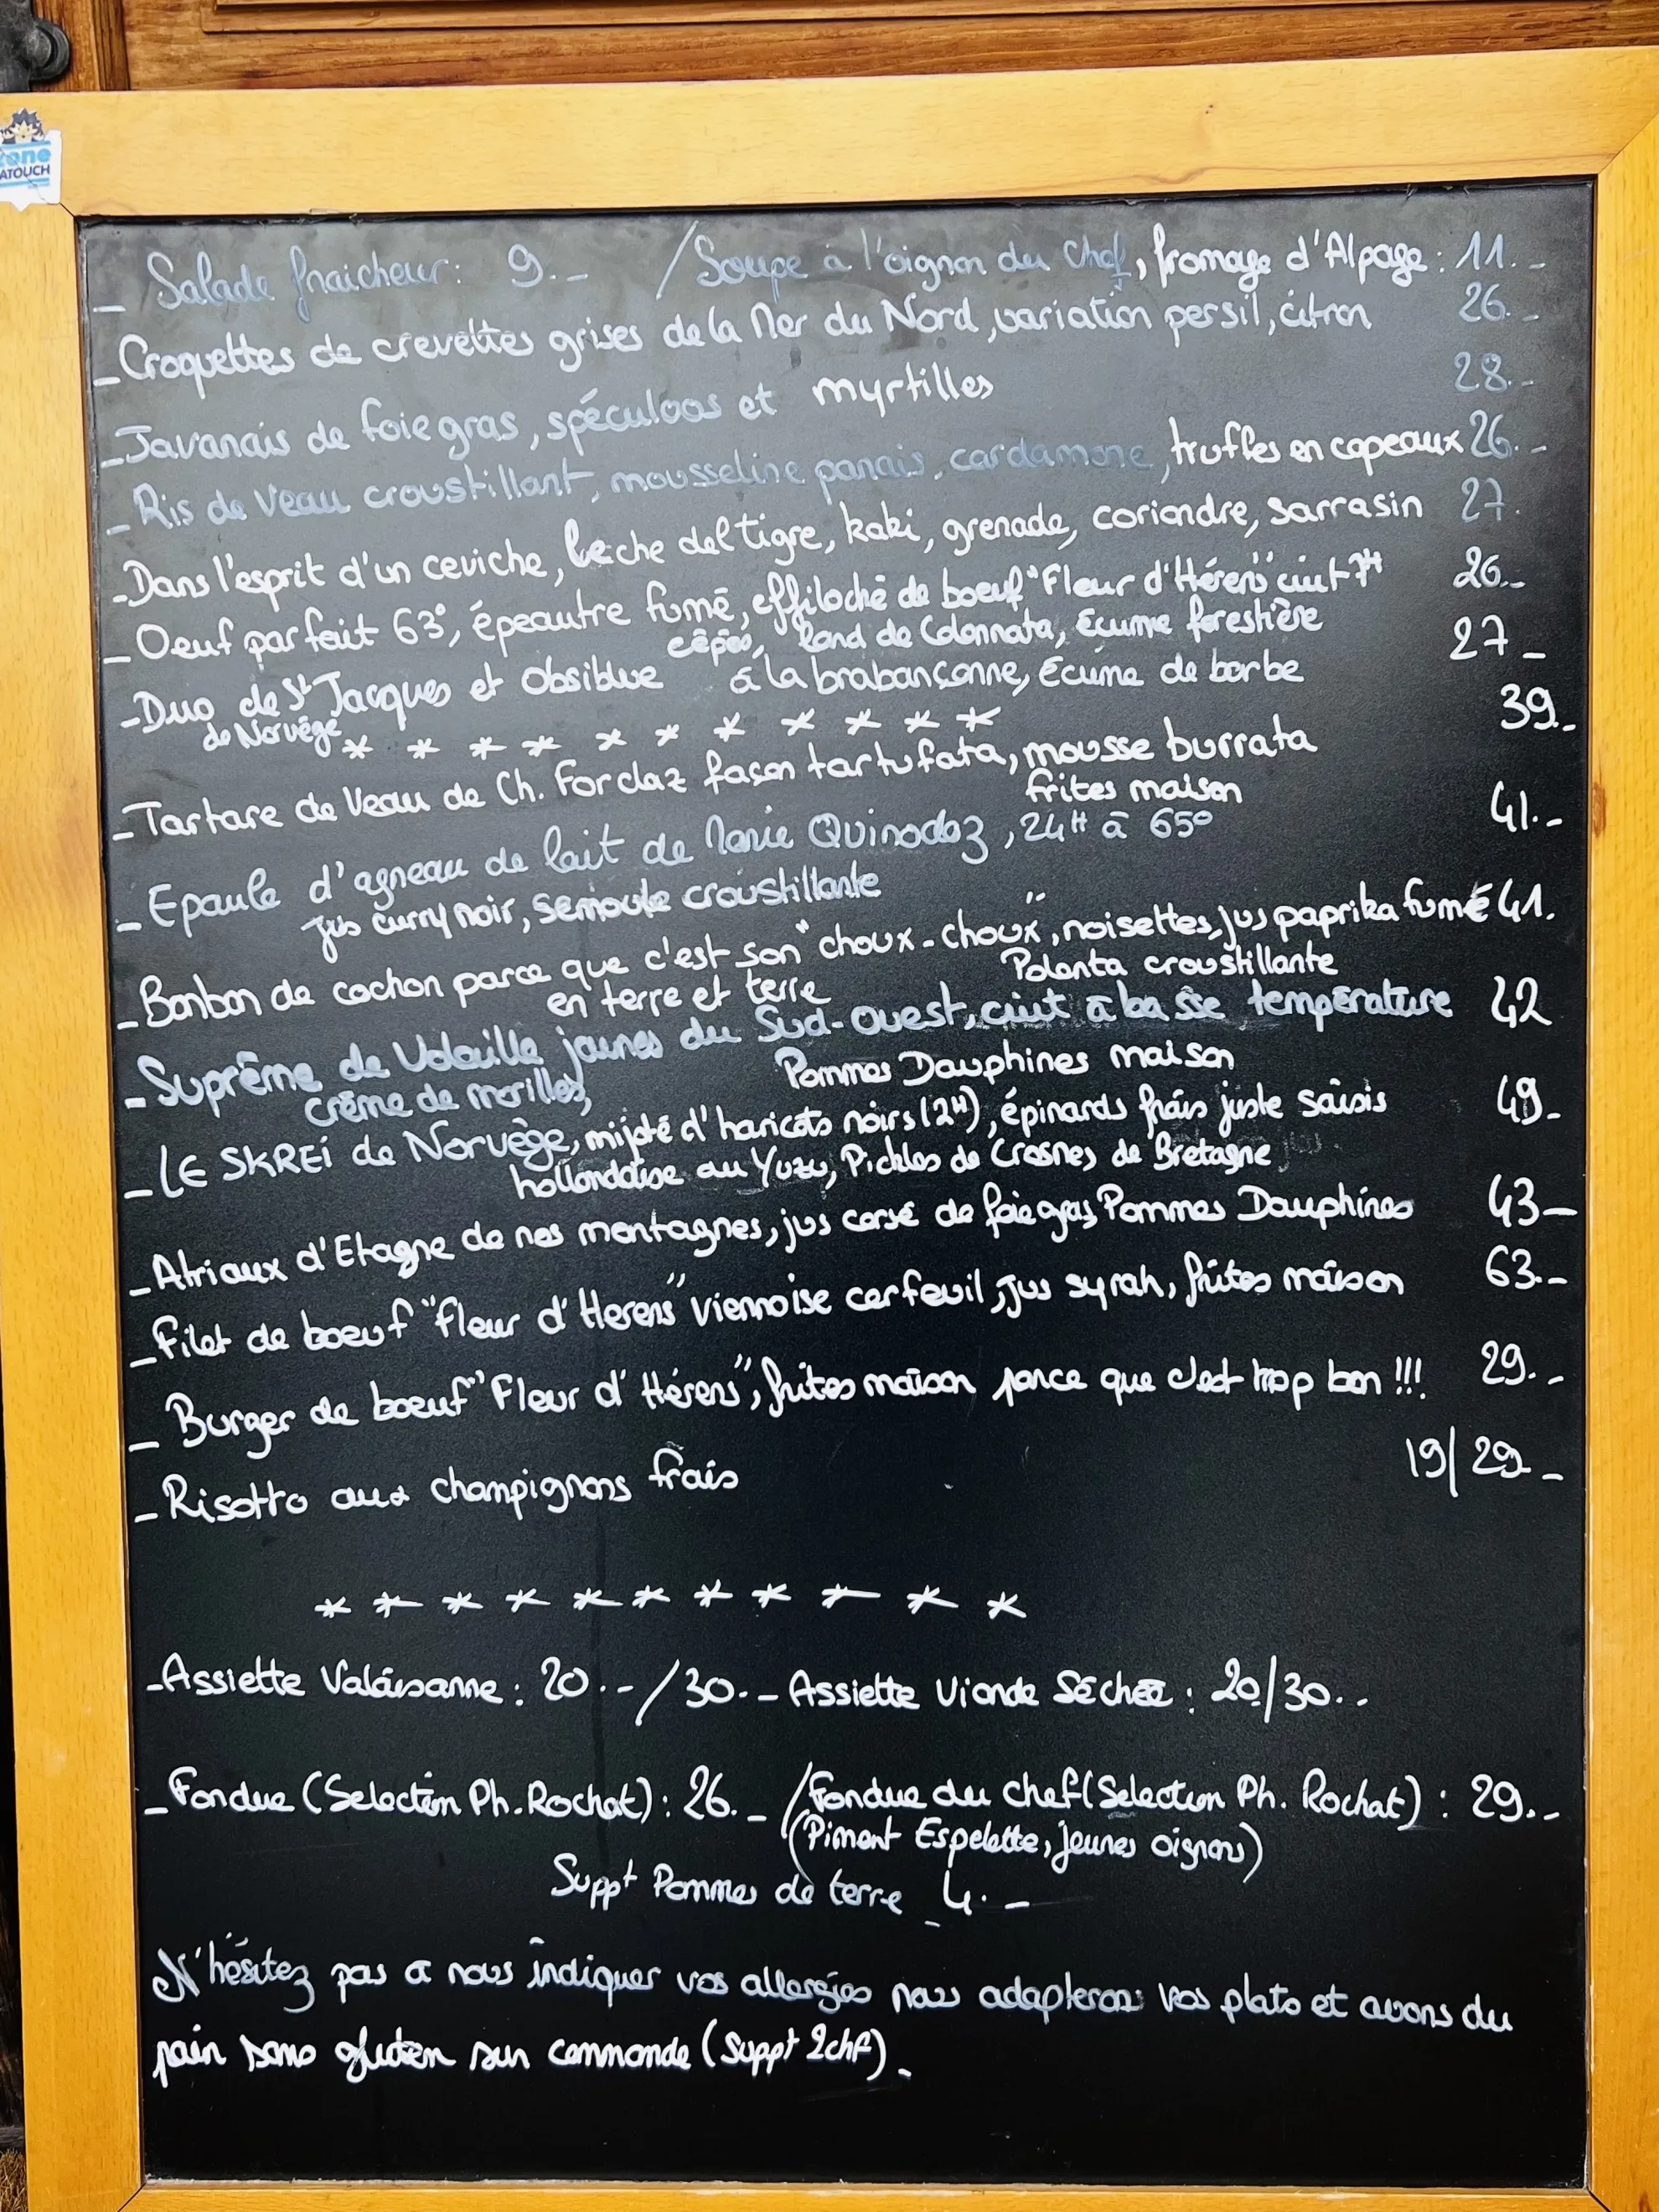 zone
ATOUCH
- Salade fraicheur : 9.- / Soupe à l'oignon du Chef, fromage d'Alpage : 11.-
- Croquettes de crevettes grises de la Mer du Nord, variation persil, citron 26.-
- Javanais de foie gras, spéculoos et myrtilles 28.-
- Ris de Veau croustillant, mousseline panais, cardamone, truffes en copeaux 26.-
- Dans l'esprit d'un ceviche, leche del tigre, kaki, grenade, coriandre, sarrasin 27.
- Oeuf parfait 63°, épeautre fumé, effiloché de boeuf "Fleur d'Hérens" cuit 7H 26.-
cêpes, lard de Colonnata, Écume forestière
- Duo de St Jacques et Obsiblue à la brabançonne, Écume de barbe 27-
de Norvège
* * * * * * * * * *
- Tartare de Veau de Ch. Forclaz façon tartufata, mousse burrata 39.-
frites maison
- Epaule d'agneau de lait de Marie Quinodoz, 24H à 65° 41.-
jus curry noir, semoule croustillante
- Bonbon de cochon parce que c'est son "choux-choux", noisettes, jus paprika fumé 41.
en terre et terre Polenta croustillante
- Suprême de Volaille jaunes du Sud-Ouest, cuit à basse température 42
crème de morilles, Pommes Dauphines maison
- LE SKREI de Norvège, mijoté d'haricots noirs (2H), épinards frais juste saisis 49-
hollondaise au Yuzu, Pickles de Crosnes de Bretagne
- Atriaux d'Etagne de nos montagnes, jus corsé de foie gras, Pommes Dauphines 43-
- Filet de boeuf "Fleur d'Herens" viennoise cerfeuil, jus syrah, frites maison 63.-
- Burger de boeuf "Fleur d'Hérens", frites maison parce que c'est trop bon !!! 29.-
- Risotto aux champignons frais 19/29-
* * * * * * * * * * *
- Assiette Valaisanne : 20.-/30.- Assiette Viande Séchée : 20/30.-
- Fondue (Selection Ph. Rochat) : 26.- / Fondue du chef (Selection Ph. Rochat) : 29.-
(Piment Espelette, jeunes oignons)
Suppt Pommes de terre 4.-
N'hésitez pas a nous indiquer vos allergies nous adapterons vos plats et avons du
pain sans gluten sur commande (Suppt 2chf).